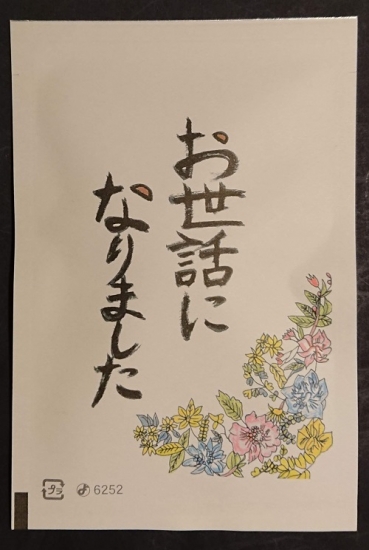 お世話に
なりました
プラ
6252